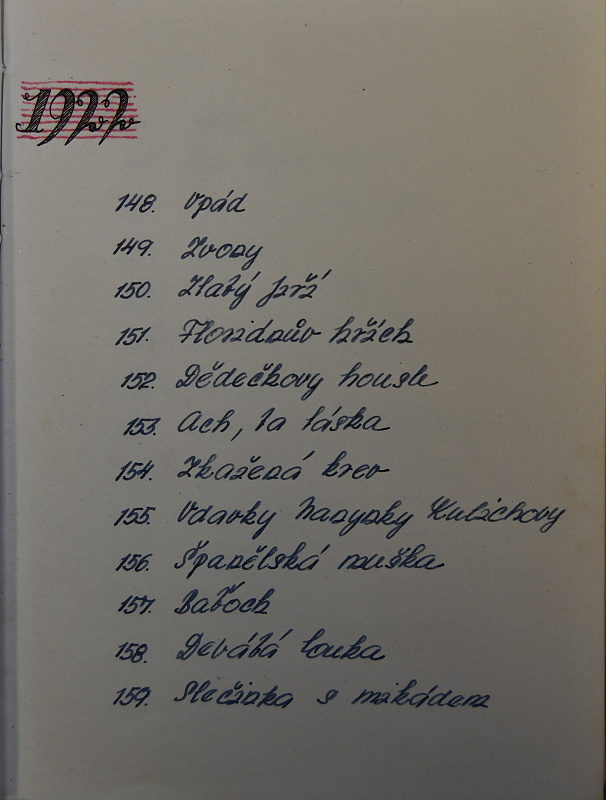 1922
148. Vpád
149. Zvony
150. Zlatý
151. Floriánův hřích
152. Dědečkovy housle
153. Ach, ta láska
154. Zkažená krev
155. Vdavky Nanynky Kulichovy
156. Španělská muška
157. Baťoch
158. Devátá louka
159. Slečinka s mikádem